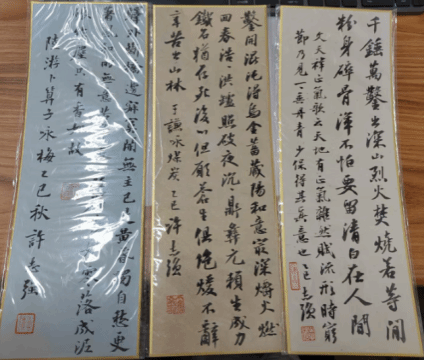 千錘萬鑿出深山烈火焚燒若等閒
粉身碎骨渾不怕要留清白在人間
文天祥正氣歌云天地有正氣雜然賦流形時窮
節乃見一一垂丹青少保特其真意也乙巳志強
鑿開混沌得烏金蓄藏陽和意最深爝火燃
回春浩浩洪爐照破夜沉沉鼎彝元賴生成力
鐵石猶存死後心但願蒼生俱飽煖不辭
辛苦出山林于謙咏煤炭乙巳許志強
驛外斷橋邊寂寞開無主已是黃昏獨自愁更
著風和雨無意苦零落成泥
碾作塵只有香如故
陸游卜算子咏梅乙巳秋許志強